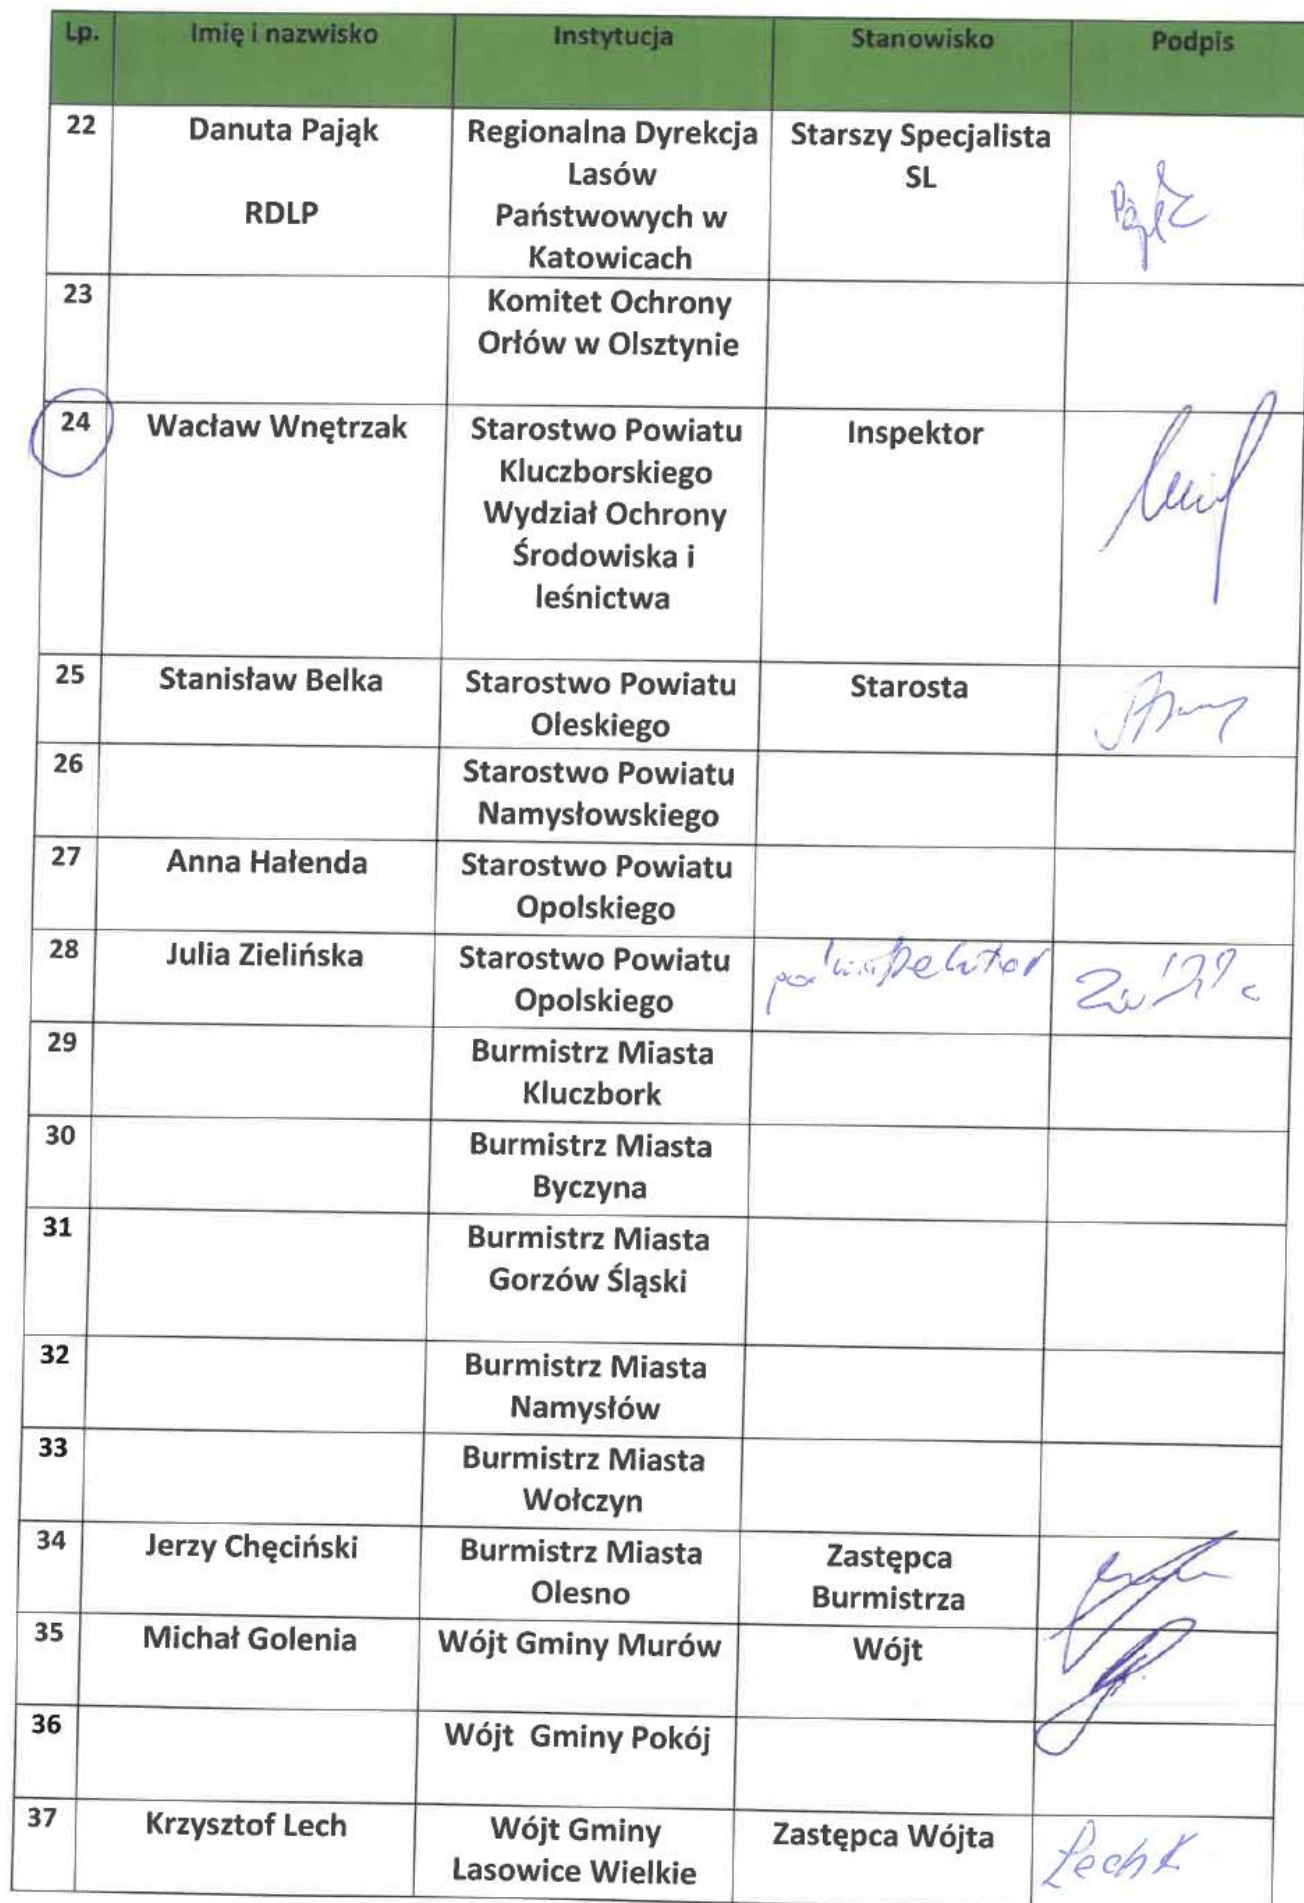 Lp. Imię i nazwisko Instytucja Stanowisko Podpis
22 Danuta Pająk Regionalna Dyrekcja Starszy Specjalista
Lasów SL
RDLP Państwowych w
Katowicach
23 Komitet Ochrony
Orłów w Olsztynie
24 Wacław Wnętrzak Starostwo Powiatu Inspektor
Kluczborskiego
Wydział Ochrony
Środowiska i
leśnictwa
25 Stanisław Belka Starostwo Powiatu Starosta
Oleskiego
26 Starostwo Powiatu
Namysłowskiego
27 Anna Hałenda Starostwo Powiatu
Opolskiego
28 Julia Zielińska Starostwo Powiatu podinspektor
Opolskiego
29 Burmistrz Miasta
Kluczbork
30 Burmistrz Miasta
Byczyna
31 Burmistrz Miasta
Gorzów Śląski
32 Burmistrz Miasta
Namysłów
33 Burmistrz Miasta
Wołczyn
34 Jerzy Chęciński Burmistrz Miasta Zastępca
Olesno Burmistrza
35 Michał Golenia Wójt Gminy Murów Wójt
36 Wójt Gminy Pokój
37 Krzysztof Lech Wójt Gminy Zastępca Wójta Lech K
Lasowice Wielkie